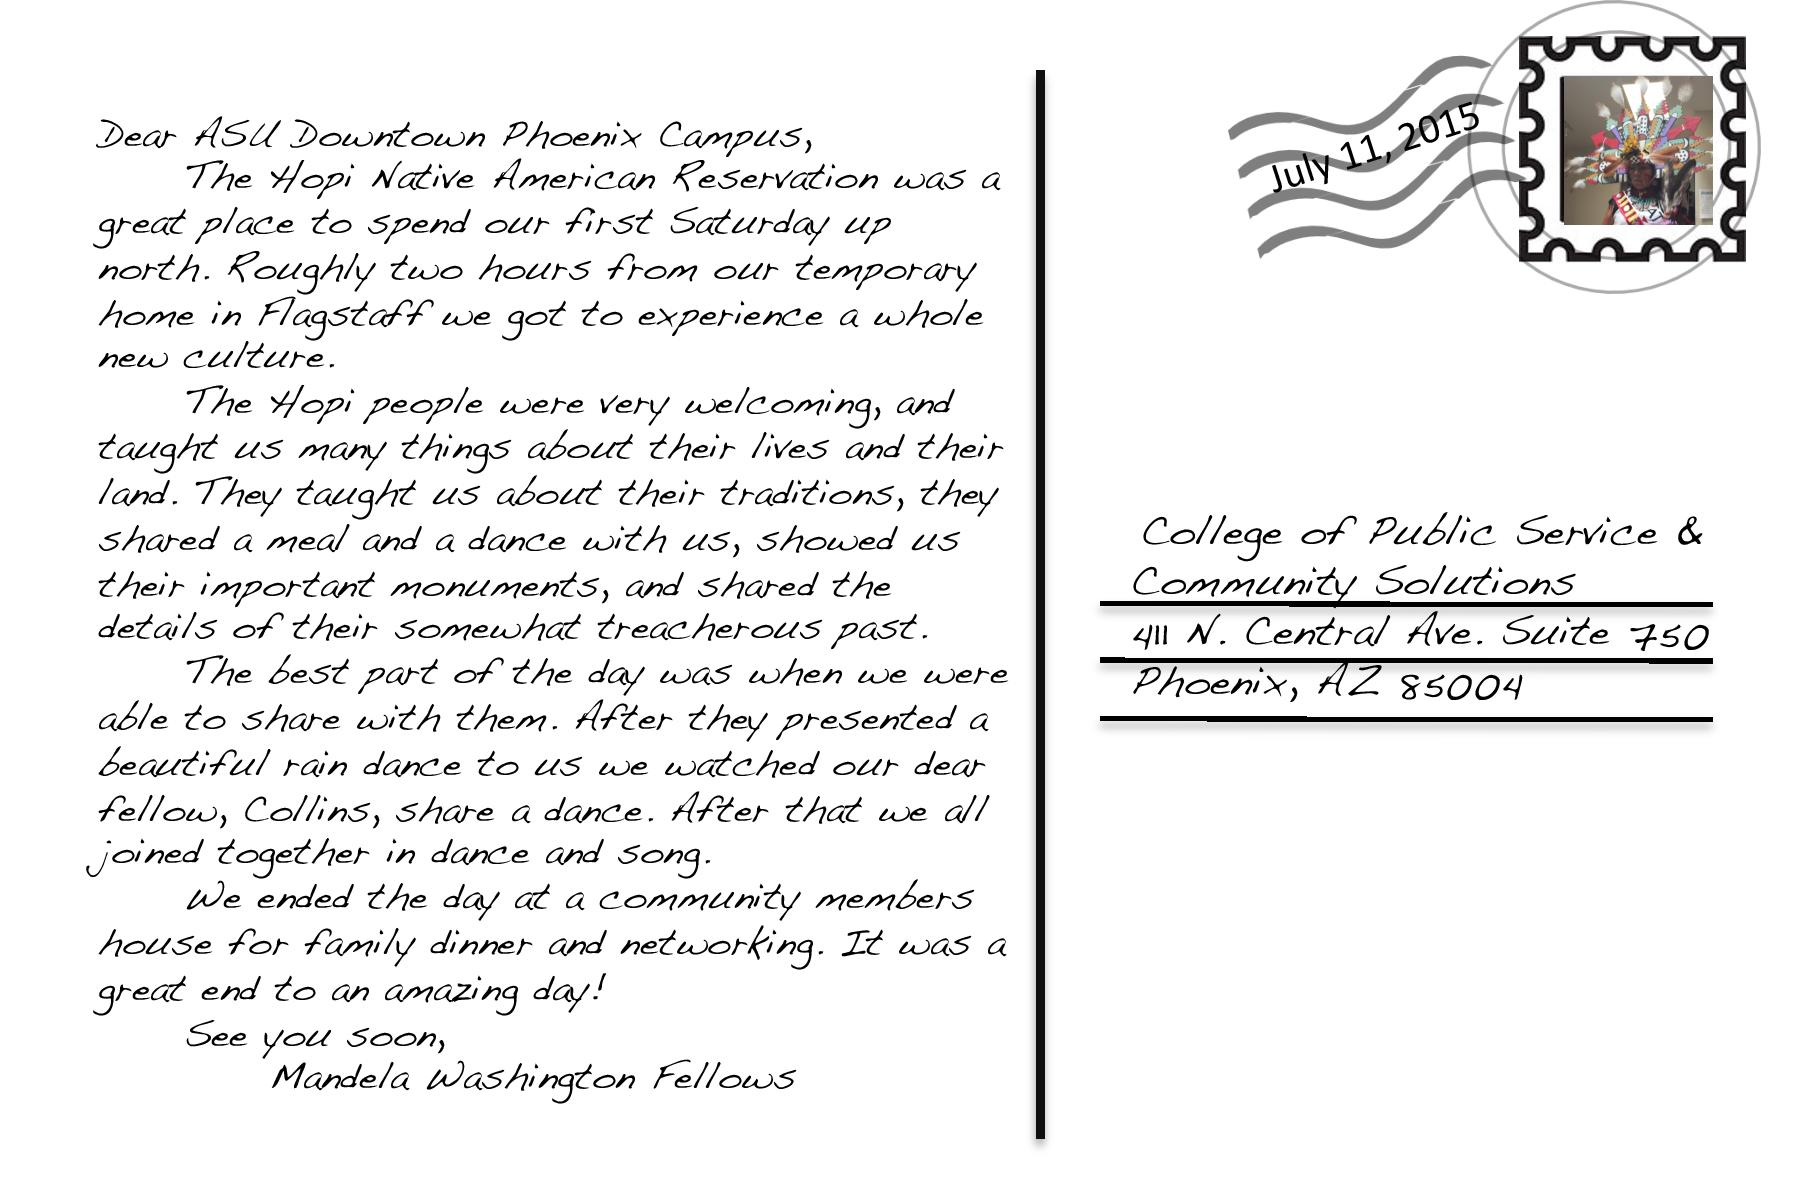 Dear ASU Downtown Phoenix Campus,
The Hopi Native American Reservation was a
great place to spend our first Saturday up
north. Roughly two hours from our temporary
home in Flagstaff we got to experience a whole
new culture.
The Hopi people were very welcoming, and
taught us many things about their lives and their
land. They taught us about their traditions, they
shared a meal and a dance with us, showed us
their important monuments, and shared the
details of their somewhat treacherous past.
The best part of the day was when we were
able to share with them. After they presented a
beautiful rain dance to us we watched our dear
fellow, Collins, share a dance. After that we all
joined together in dance and song.
We ended the day at a community members
house for family dinner and networking. It was a
great end to an amazing day!
See you soon,
Mandela Washington Fellows
July 11, 2015
College of Public Service &
Community Solutions
411 N. Central Ave. Suite 750
Phoenix, AZ 85004